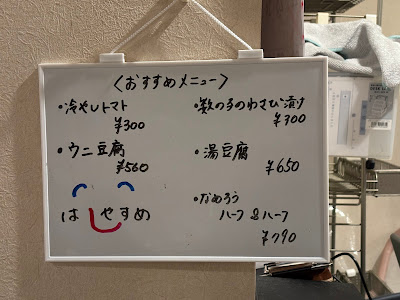 〈おすすめメニュー〉
・冷やしトマト
¥300
・ウニ豆腐
¥560
はしやすめ
・数の子のわさび漬け
¥300
・湯豆腐
¥650
・なめろう
ハーフ&ハーフ
¥790